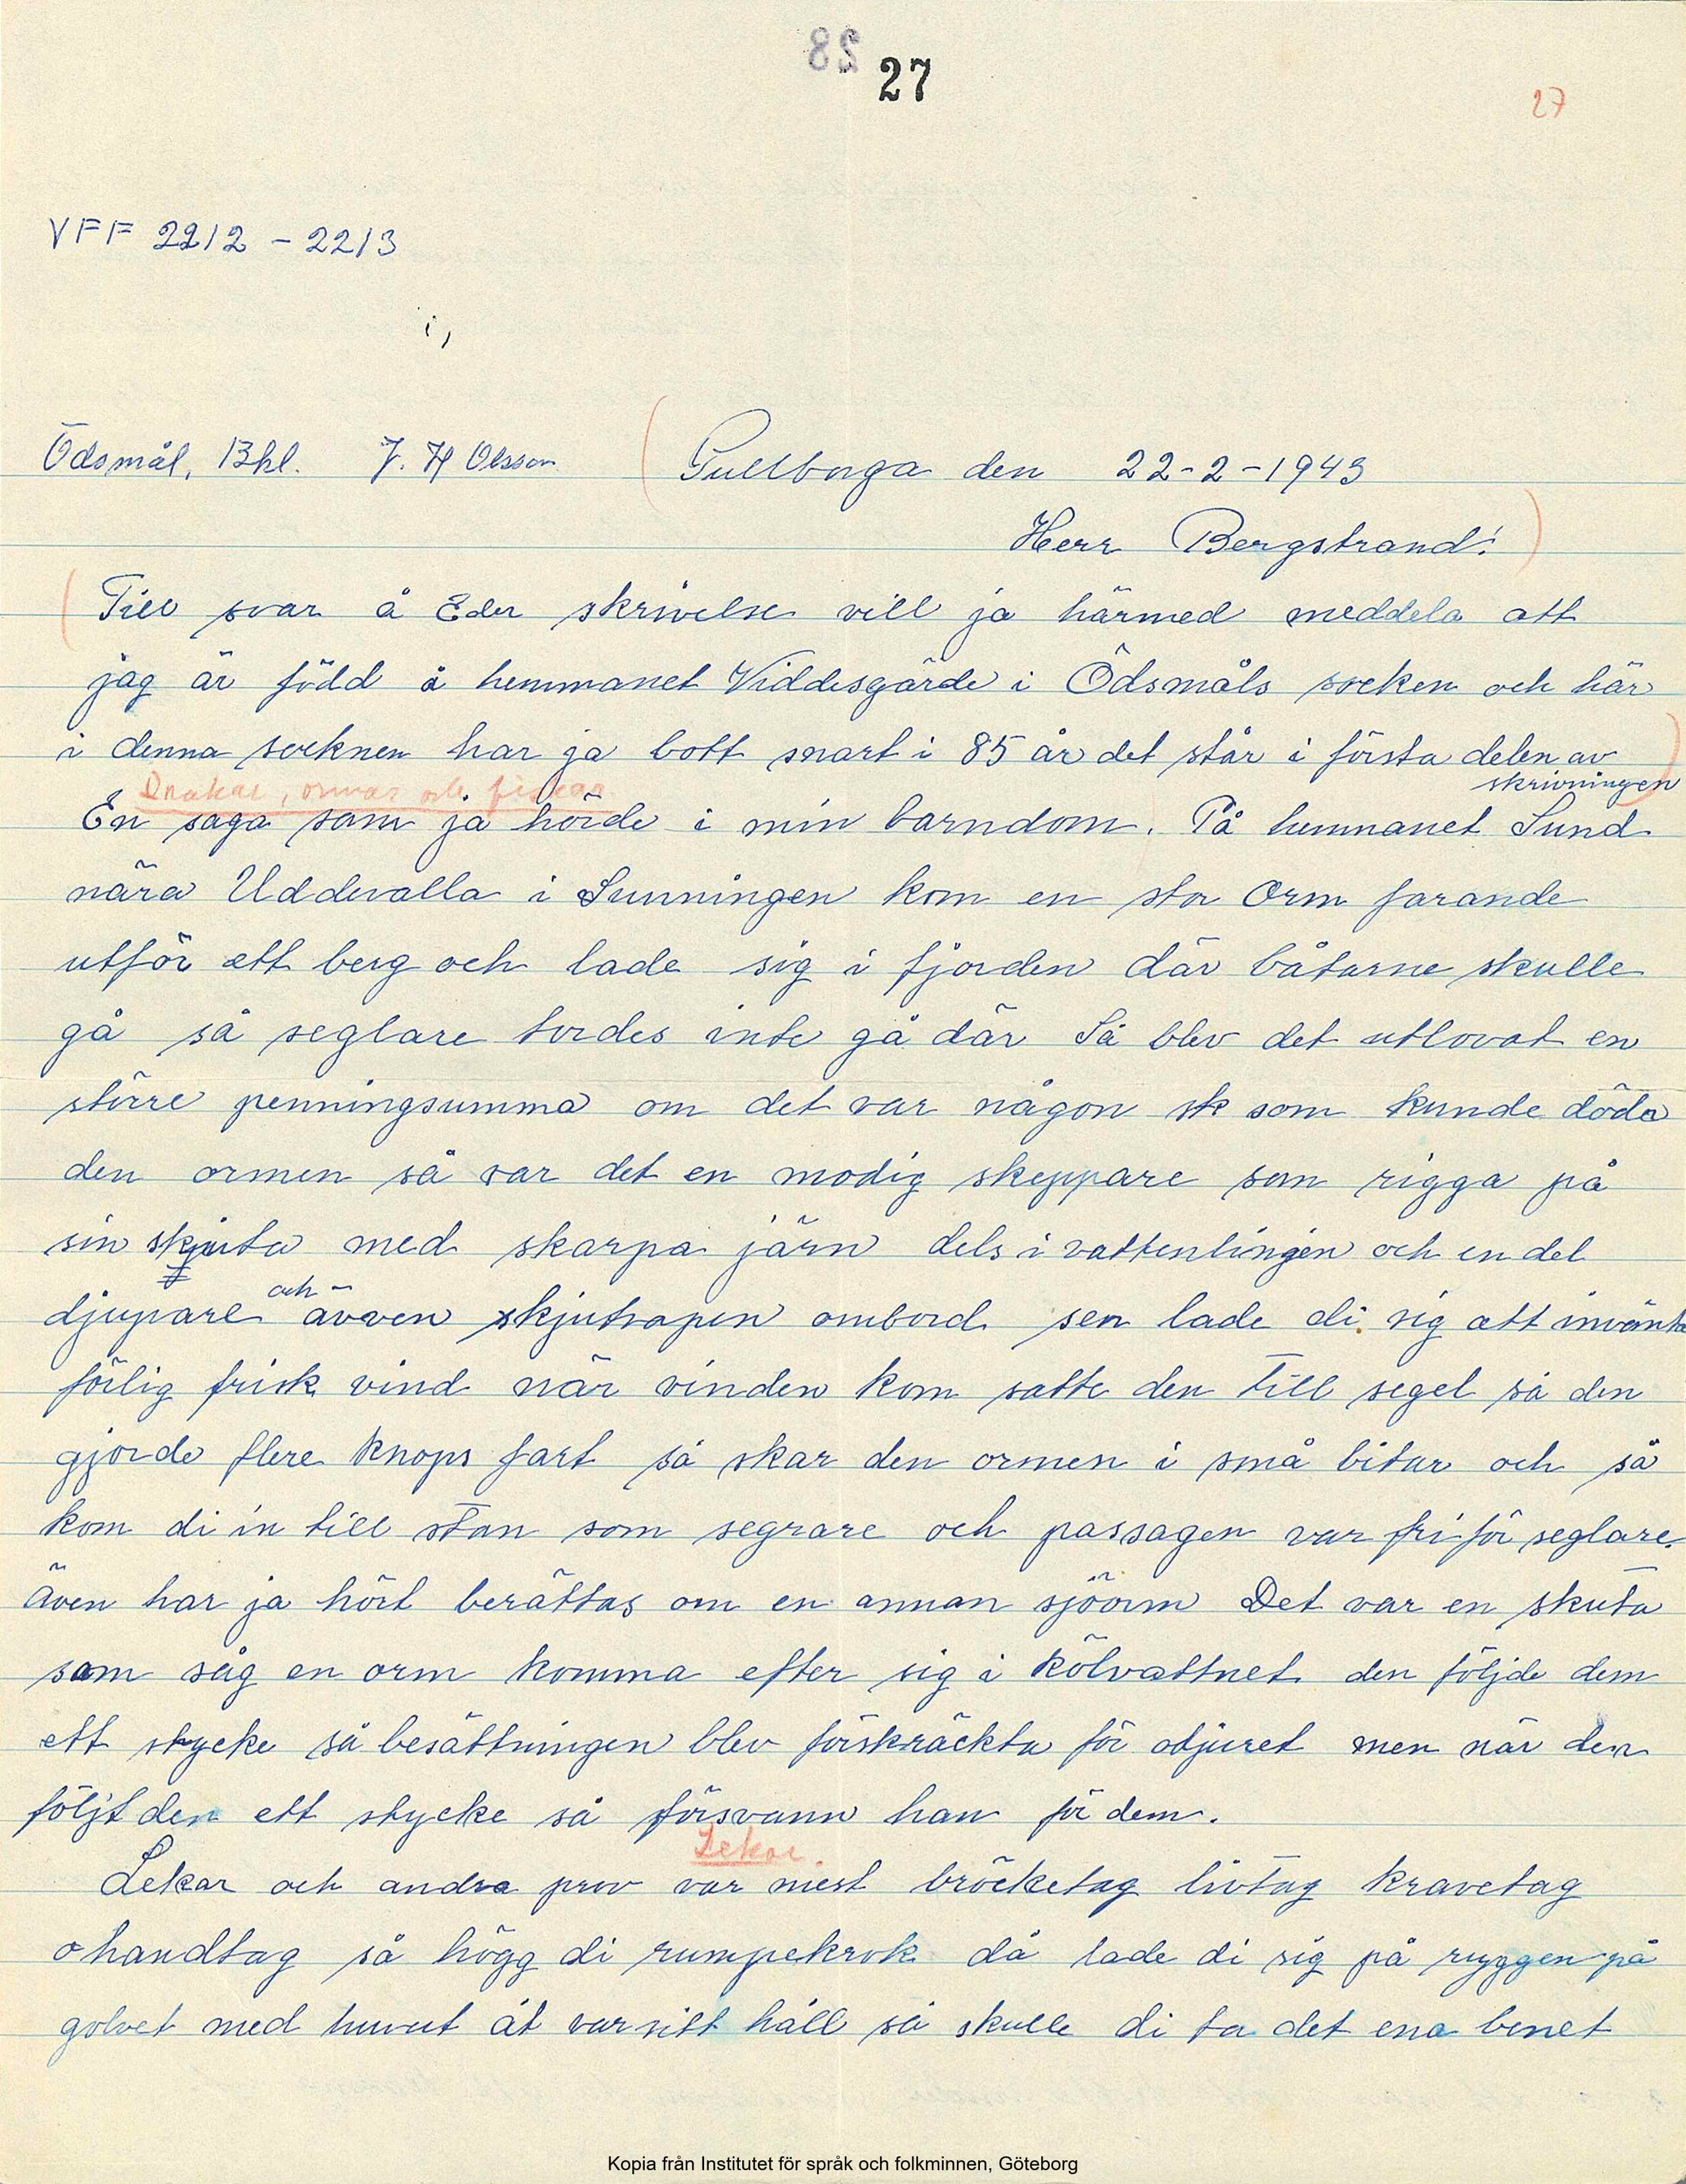 28 27
27
VFF 2212 - 2213
Ödsmål, Bhl. J. H Olsson (Gullborga den 22-2-1943
Herr Bergstrand!)
(Till svar å Eder skrivelse vill ja härmed meddela att
jag är född å hemmanet Viddesgärde i Ödsmåls socken och här
i denna socknen har ja bott snart i 85 år det står i första delen av
skrivningen)
Drakar, ormar och fiskar
En saga som ja hörde i min barndom. På hemmanet Sund
nära Uddevalla i Sunningen kom en stor Orm farande
utför ett berg och lade sig i fjorden där båtarne skulle
gå så seglare tordes inte gå där Så blev det utlovat en
större penningsumma om det var någon sk som kunde döda
den ormen så var det en modig skeppare som rigga på
sin skjuta med skarpa järn dels i vattenlinjen och en del
och
djupare även skjutvapen ombord sen lade di sig att invänta
förlig frisk vind när vinden kom satte den till segel så den
gjorde flere knops fart så skar den ormen i små bitar och så
kom di in till stan som segrare och passagen var fri för seglare.
även har ja hört berättas om en annan sjöorm Det var en skuta
som såg en orm komma efter sig i kölvattnet den följde dem
ett stycke så besättningen blev förskräckta för odjuret men när den
följt den ett stycke så försvann han för dem.
Lekar
Lekar och andra prov var mest bröcketag livtag kravetag
o handtag så högg di rumpekrok då lade di sig på ryggen på
golvet med huvut åt varsitt håll så skulle di ta det ena benet
Kopia från Institutet för språk och folkminnen, Göteborg